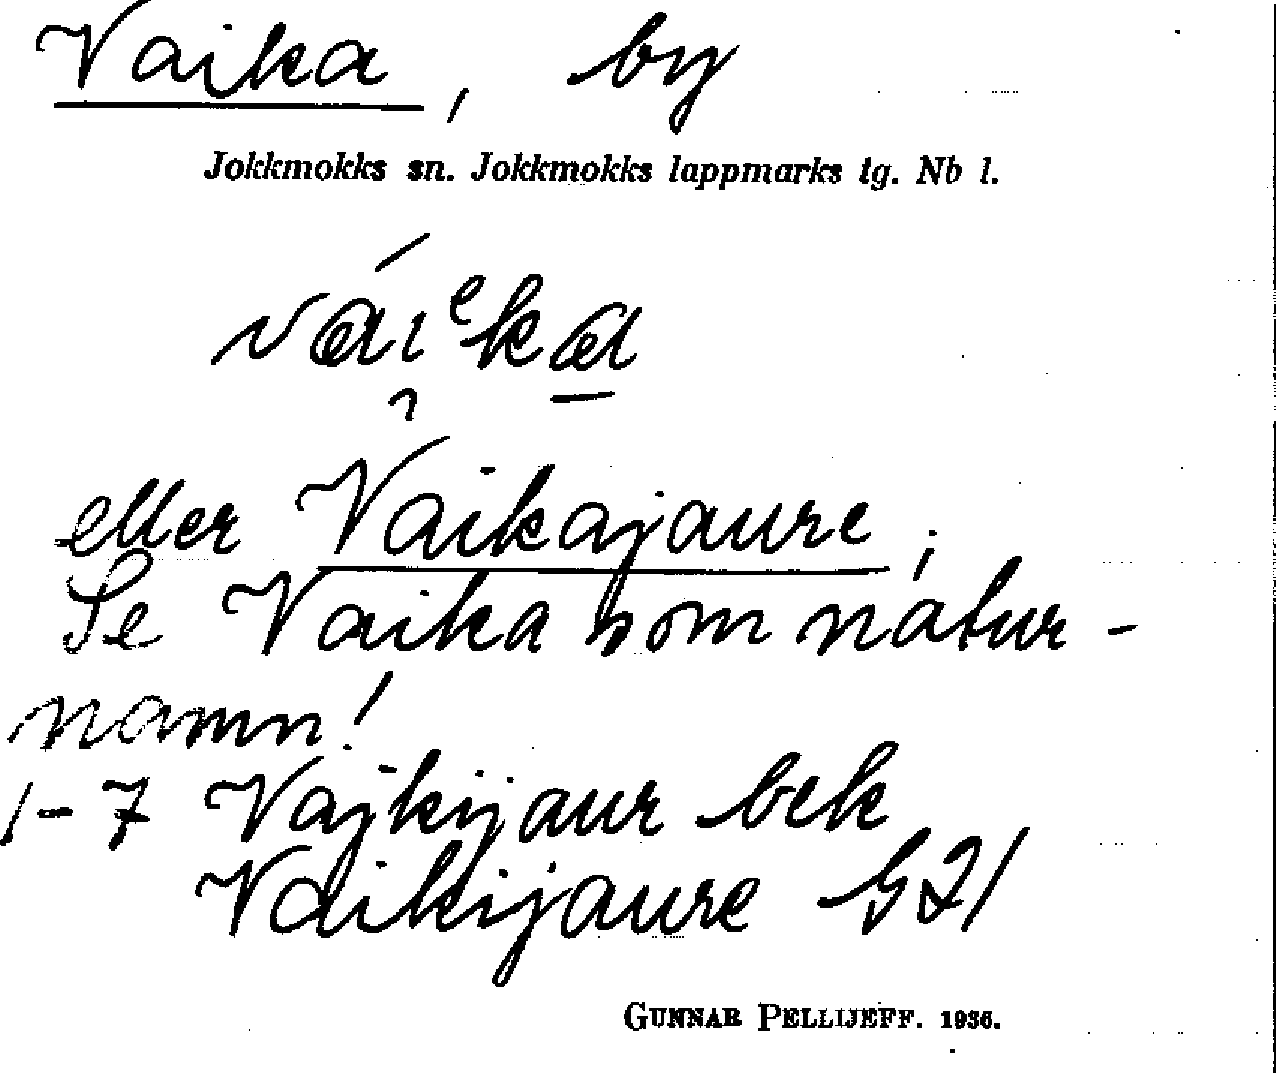 Vaika, by
Jokkmokks sn. Jokkmokks lappmarks tg. Nb l.
eller Vaikajaure;
Se Vaika som natur-
namn!
1-7 Vajkijaur bek
Vaikijaure G21
GUNNAR PELLIJEFF. 1936.